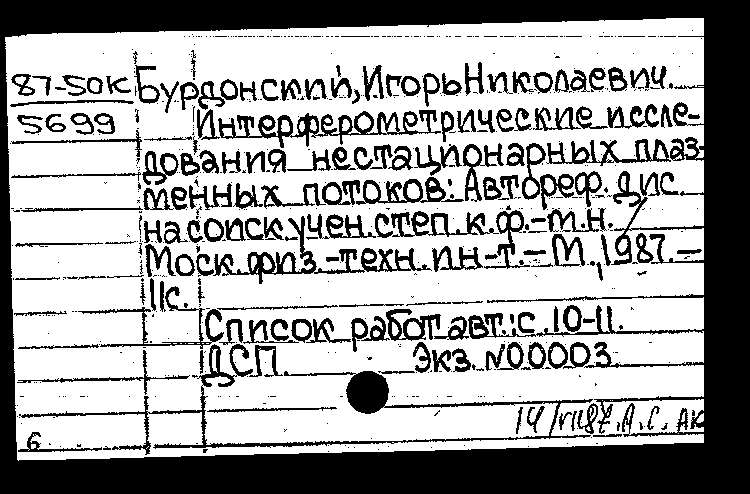 87-50К Бурдонский, Игорь Николаевич.
5699 Интерферометрические иссле-
дования нестационарных плаз-
менных потоков: Автореф. дис.
на соиск. учен. степ. к. ф.-м. н. /
Моск. физ.-техн. ин-т. – М., 1987. –
11с.
Список работ авт.: с. 10-11.
ДСП. Экз. N00003.
14/VII87. А.С. АК
6